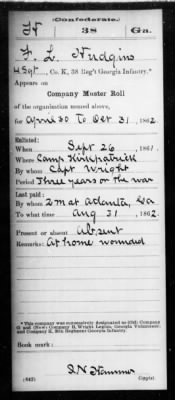 (Confederate.)
H 38 Ga.
F. L. Hudgins
4 Sgt, Co. K, 38 Reg't Georgia Infantry.*
Appears on
Company Muster Roll
of the organization named above,
for April 30 to Oct 31, 1862.
Enlisted:
When Sept 26, 1861.
Where Camp Kirkpatrick
By whom Capt Wright
Period Three years or the war
Last paid:
By whom 2 m at Atlanta, Ga
To what time Aug 31, 1862.
Present or absent Absent
Remarks: At home wounded
*This company was successively designated as (Old) Company
G and (New) Company D, Wright Legion, Georgia Volunteers;
and Company K, 38th Regiment Georgia Infantry.
Book mark:
(642) Copyist.